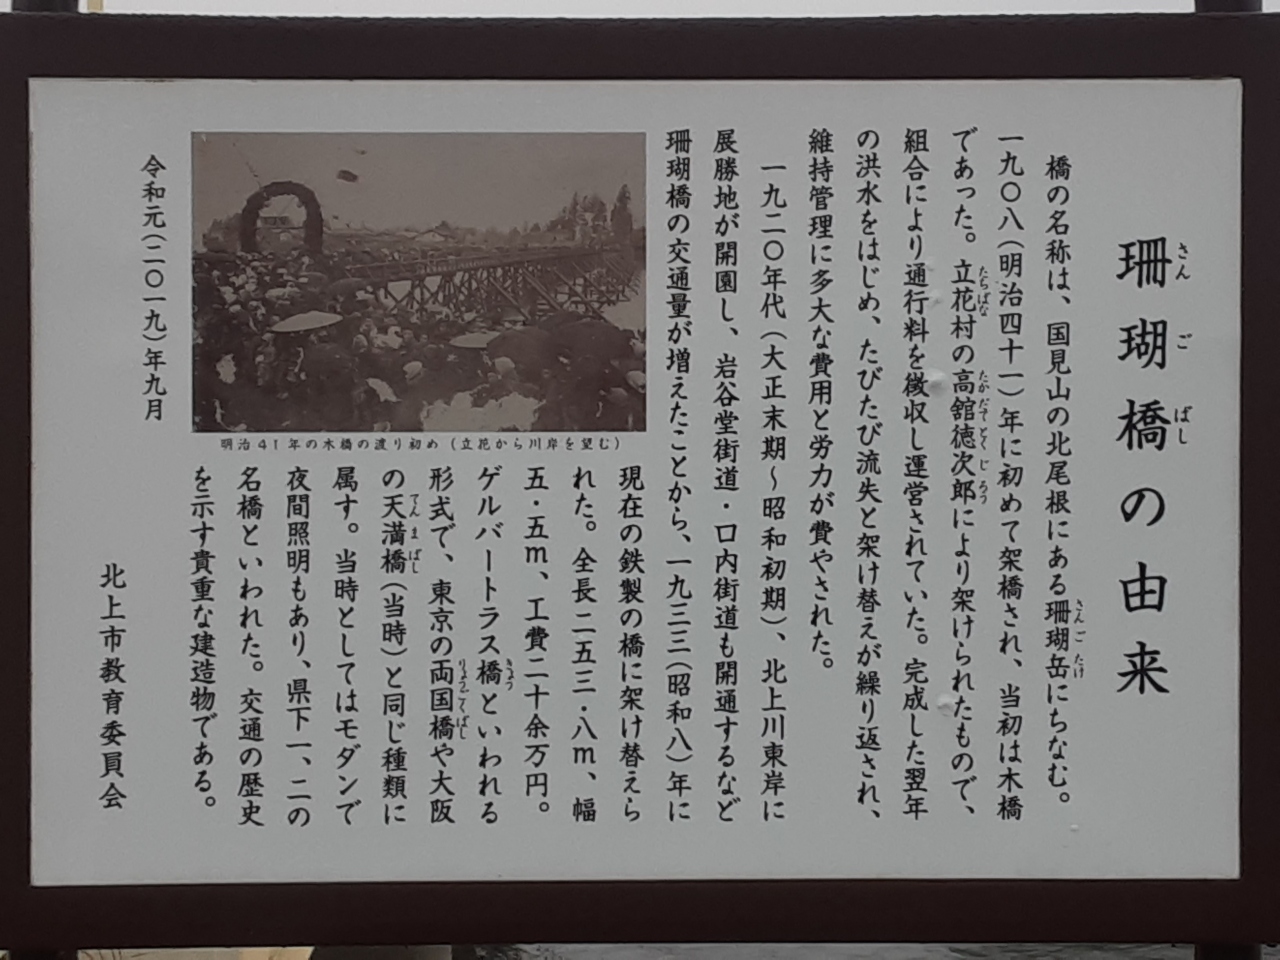 珊瑚橋の由来
さんごばし
橋の名称は、国見山の北尾根にある珊瑚岳にちなむ。
さんごたけ
一九〇八（明治四十一）年に初めて架橋され、当初は木橋
であった。立花村の高舘徳次郎により架けられたもので、
たちばな
たかだてとくじろう
組合により通行料を徴収し運営されていた。完成した翌年
の洪水をはじめ、たびたび流失と架け替えが繰り返され、
維持管理に多大な費用と労力が費やされた。
一九二〇年代（大正末期～昭和初期）、北上川東岸に
展勝地が開園し、岩谷堂街道・口内街道も開通するなど
珊瑚橋の交通量が増えたことから、一九三三（昭和八）年に
現在の鉄製の橋に架け替えら
れた。全長二五三・八ｍ、幅
五・五ｍ、工費二十余万円。
ゲルバートラス橋といわれる
きょう
形式で、東京の両国橋や大阪
りょうごくばし
の天満橋（当時）と同じ種類に
てんまばし
属す。当時としてはモダンで
夜間照明もあり、県下一、二の
名橋といわれた。交通の歴史
を示す貴重な建造物である。
明治41年の木橋の渡り初め（立花から川岸を望む）
令和元（二〇一九）年九月
北上市教育委員会